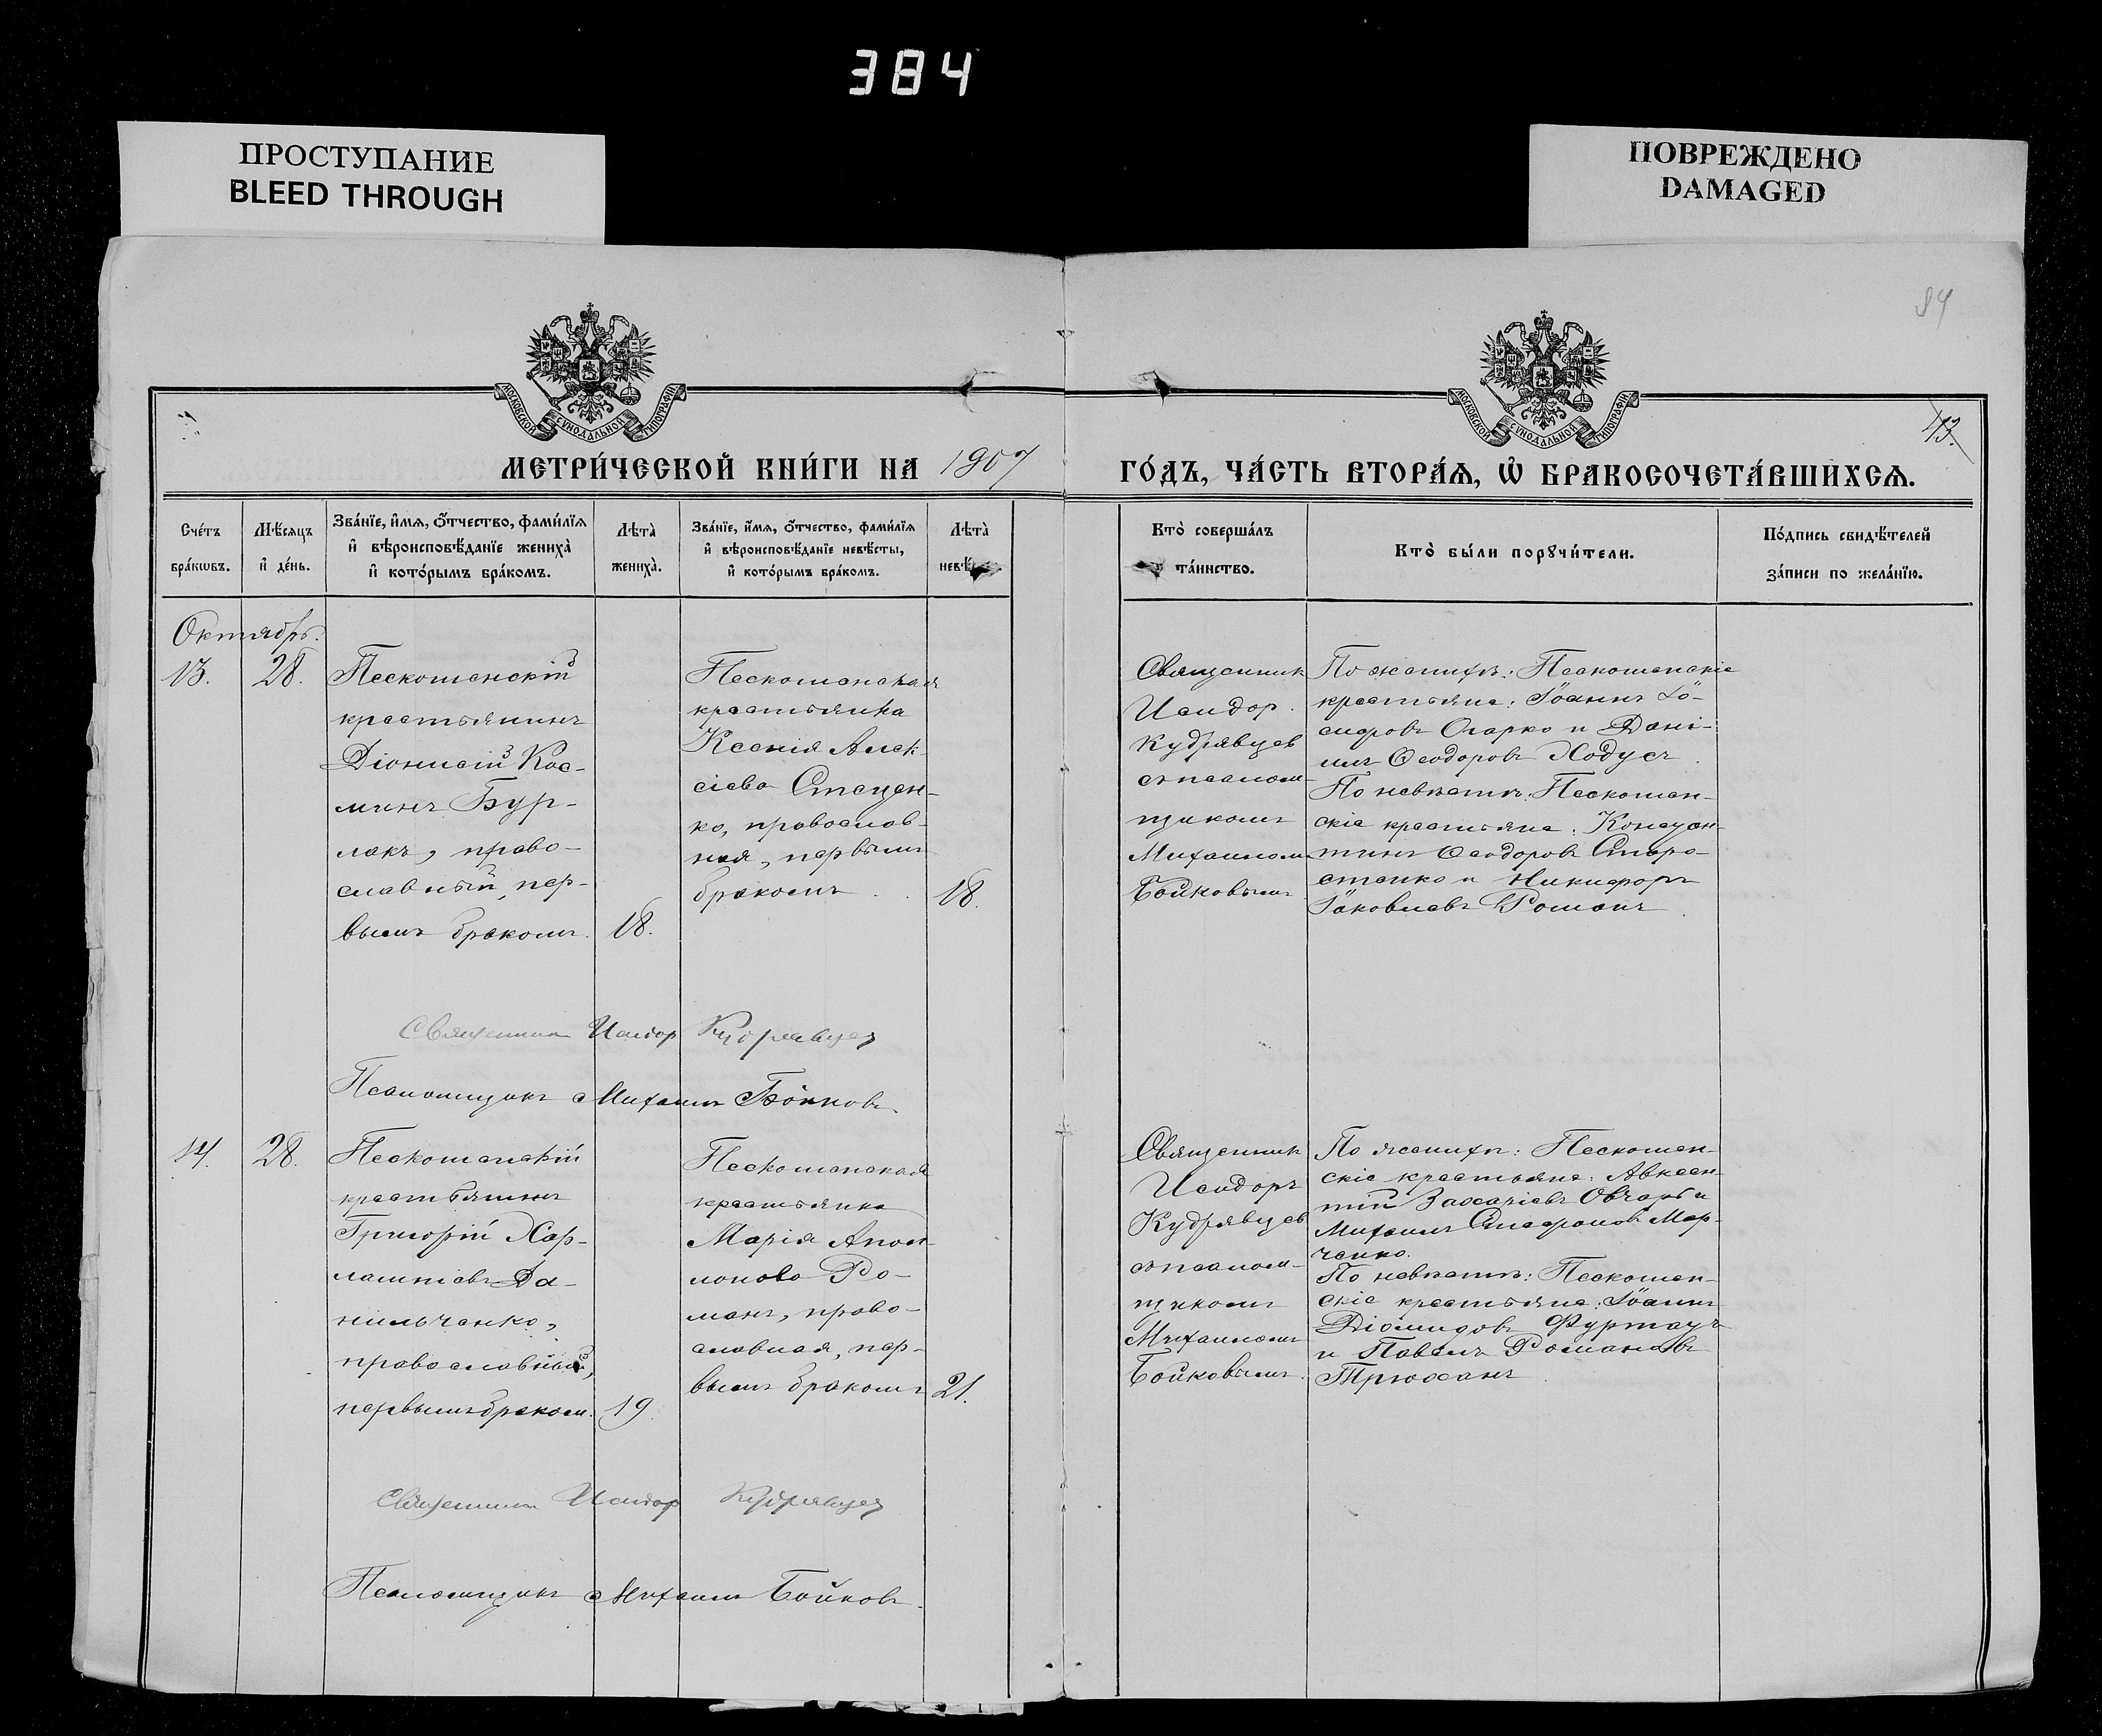 384
ПРОСТУПАНИЕ
BLEED THROUGH
ПОВРЕЖДЕНО
DAMAGED
84
43.
МОСКОВСКОЙ СѴНОДАЛЬНОЙ ТИПОГРАФІИ
МОСКОВСКОЙ СѴНОДАЛЬНОЙ ТИПОГРАФІИ
МЕТРИ́ЧЕСКОЙ КНИ́ГИ НА 1907
ГО́ДЪ, ЧА́СТЬ ВТОРА́Ѧ, Ѡ҆ БРАКОСОЧЕТА́ВШИХСѦ.
Сче́тъ
бра́кѡвъ.
Мѣ́сяцъ
и҆ де́нь.
Зва́нїе, и҆́мѧ, ѻ҆́тчество, фами́лїѧ
и҆ вѣроисповѣ́данїе жениха̀
и҆ кото́рымъ бра́комъ.
Лѣта̀
жениха̀.
Зва́нїе, и҆́мѧ, ѻ҆́тчество, фами́лїѧ
и҆ вѣроисповѣ́данїе невѣ́сты,
и҆ кото́рымъ бра́комъ.
Лѣта̀
невѣ́
Кто̀ соверша́лъ
та́инство.
Кто̀ бы́ли порꙋчи́тели.
По́дпись свидѣ́телей
за́писи по жела́нїю.
Октябрь.
13.
28.
Пескошанскій
крестьянинъ
Діонисій Кос-
минъ Бур-
лакъ, право-
славный, пер-
вымъ бракомъ.
18.
Пескошанская
крестьянка
Ксенія Алек-
сіева Стецен-
ко, православ-
ная, первымъ
бракомъ
18.
Священникъ
Исидор
Кудрявцев
съ псалом-
щикомъ
Михаиломъ
Бойковымъ
По женихѣ: Пескошанскіе
крестьяне: Іоаннъ Іо-
сифовъ Огарко и Дані-
илъ Ѳеодоровъ Ходусъ.
По невѣстѣ: Пескошан-
скіе крестьяне: Констан-
тинъ Ѳеодоровъ Старо-
стенко и Никифоръ
Іаковлевъ Романъ.
Священник Исидор Кудрявцев
Псаломщикъ Михаилъ Бойковъ
14.
28.
Пескошанскій
крестьянинъ
Григорій Хар-
лампіевъ Да-
нильченко,
православный,
первымъ браком.
19.
Пескошанская
крестьянка
Марія Апол-
лонова Ро-
манъ, право-
славная, пер-
вымъ бракомъ
21.
Священник
Исидоръ
Кудрявцев
съ псалом-
щикомъ
Михаиломъ
Бойковымъ.
По женихѣ: Пескошан-
скіе крестьяне: Авксен-
тій Захаріевъ Овчарь и
Михаилъ Мар-
ченко.
По невѣстѣ: Пескошан-
скіе крестьяне: Іоаннъ
Діомидовъ
и Павелъ Романовъ
Трюханъ
Священник Исидор Кудрявцев
Псаломщикъ Михаилъ Бойковъ.